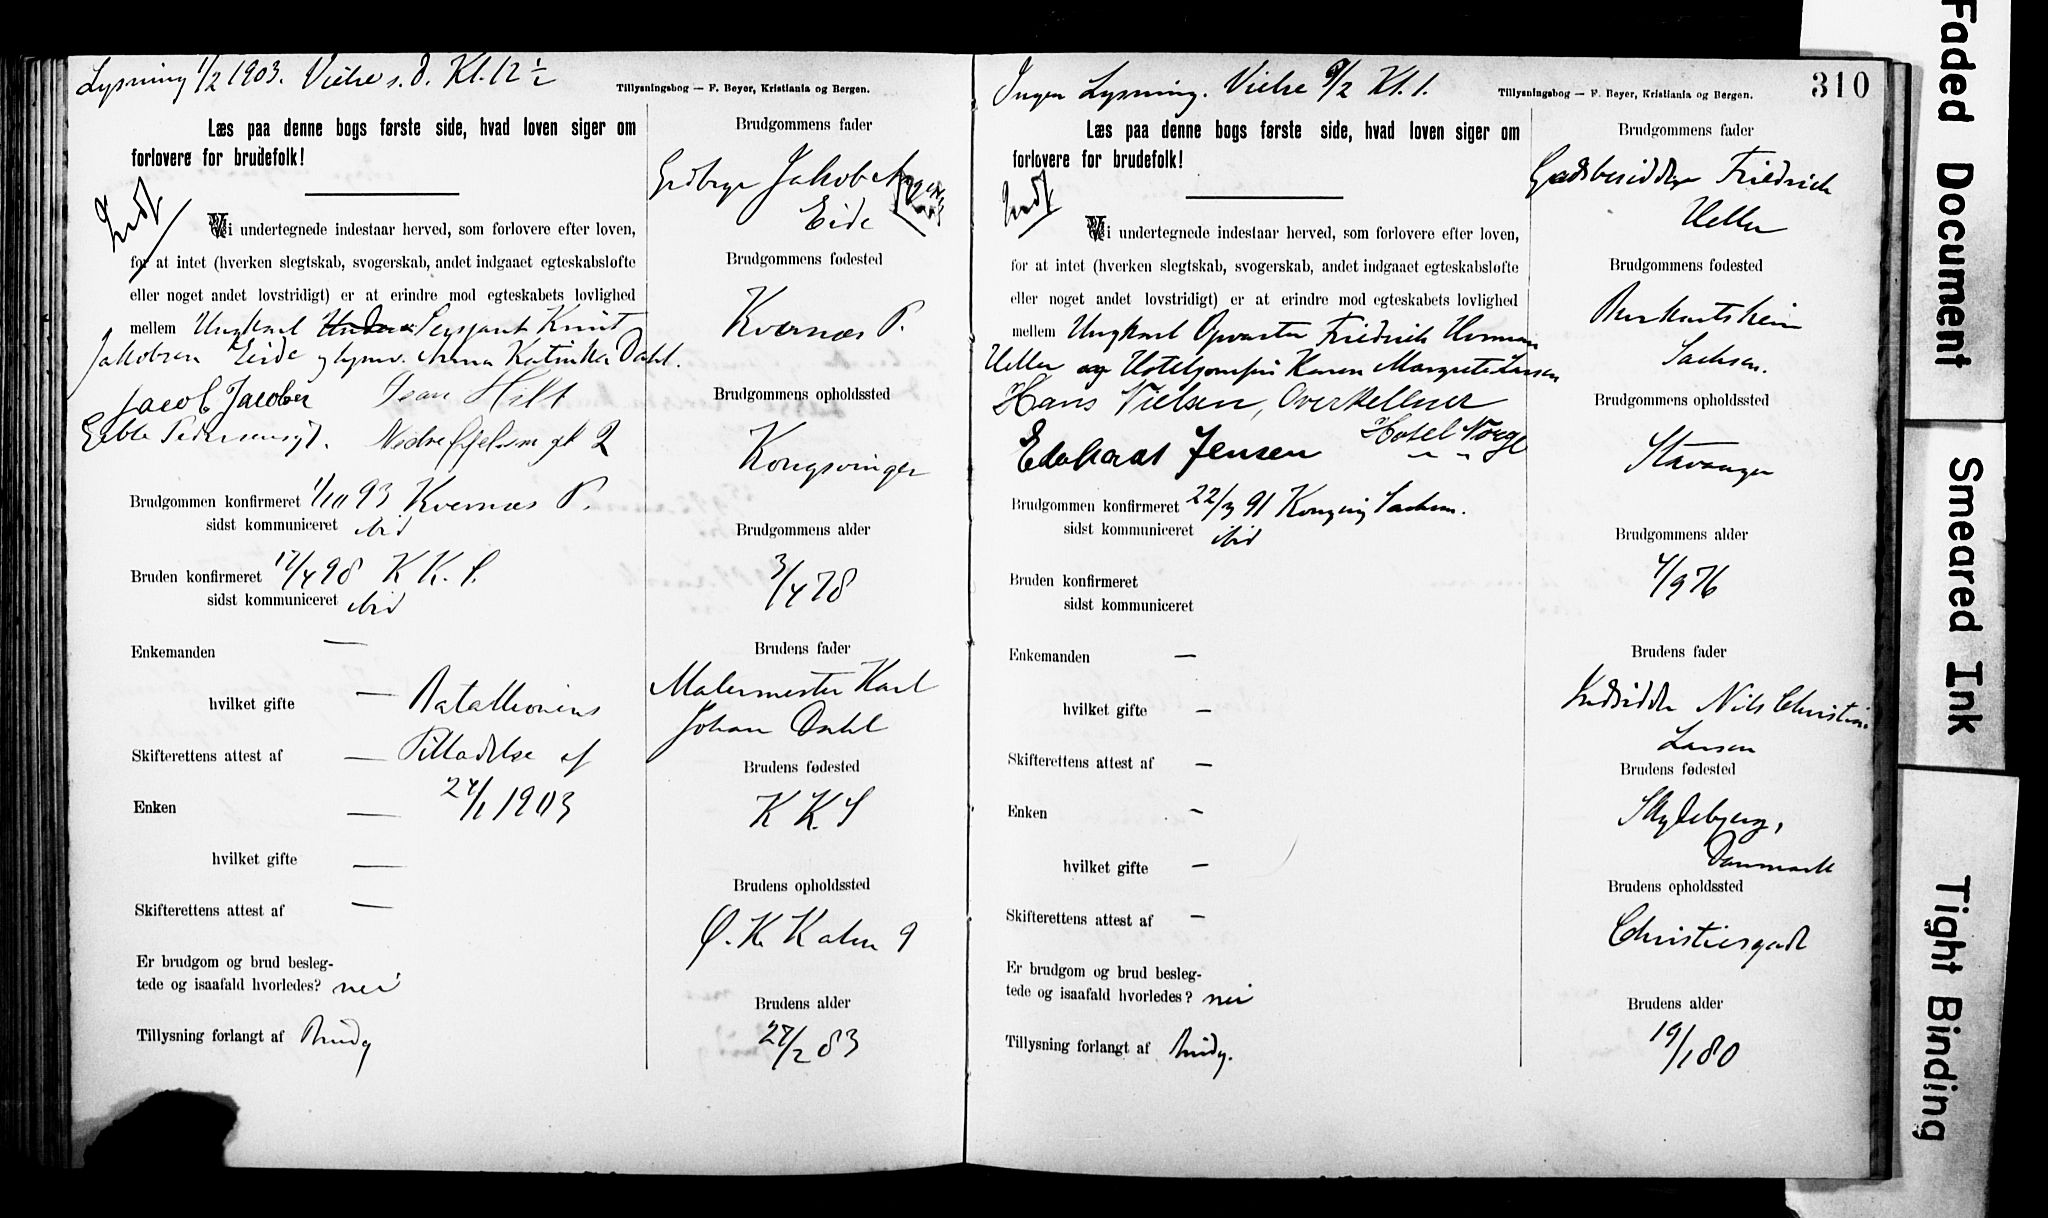 Lysning 1/2 1903. Vielse s. d. Kl. 12 1/2
Tillysningsbog — F. Beyer, Kristiania og Bergen.
Læs paa denne bogs første side, hvad loven siger om
forlovere for brudefolk!
Indf
Vi undertegnede indestaar herved, som forlovere efter loven,
for at intet (hverken slegtskab, svogerskab, andet indgaaet egteskabsløfte
eller noget andet lovstridigt) er at erindre mod egteskabets lovlighed
mellem Ungkarl Sergeant Knut
Jakobsen Eide og Anna Katinka Dahl.
Jacob Jacobsen
Nedre 2
Brudgommen konfirmeret 1/10 93 Kvernæs P.
sidst kommuniceret ibid
Bruden konfirmeret 17/4 98 K K. S.
sidst kommuniceret ibid
Enkemanden —
hvilket gifte —
Bataillonens
Skifterettens attest af —
Tilladelse af
24/1 1903
Enken —
hvilket gifte —
Skifterettens attest af —
Er brudgom og brud besleg-
tede og isaafald hvorledes? nei
Tillysning forlangt af Brudg
Brudgommens fader
Grdbrgr Jakob
Eide
Brudgommens fødested
Kvernæs P.
Brudgommens opholdssted
Kongsvinger
Brudgommens alder
3/4 78
Brudens fader
Malermester Karl
Johan Dahl
Brudens fødested
K K. S
Brudens opholdssted
Ø. K. Kalm 9
Brudens alder
27/2 83
Ingen Lysning. Vielse 9/2 Kl. 1.
Tillysningsbog — F. Beyer, Kristiania og Bergen.
310
Læs paa denne bogs første side, hvad loven siger om
forlovere for brudefolk!
Indf
Vi undertegnede indestaar herved, som forlovere efter loven,
for at intet (hverken slegtskab, svogerskab, andet indgaaet egteskabsløfte
eller noget andet lovstridigt) er at erindre mod egteskabets lovlighed
mellem Ungkarl Opvarter Friedrich Herman
Heller og Hoteljomfru Karen Margrete Larsen
Hans Nielsen, Overkellner
Hotel Norge
Edvard Jensen
Brudgommen konfirmeret 22/3 91 Sachsen.
sidst kommuniceret ibid
Bruden konfirmeret
sidst kommuniceret
Enkemanden —
hvilket gifte —
Skifterettens attest af —
Enken —
hvilket gifte —
Skifterettens attest af —
Er brudgom og brud besleg-
tede og isaafald hvorledes? nei
Tillysning forlangt af Brudg.
Brudgommens fader
Gaardsbesidder Friedrich
Heller
Brudgommens fødested
Sachsen.
Brudgommens opholdssted
Stavanger
Brudgommens alder
4/9 76
Brudens fader
Indsidder Nils Christian
Larsen
Brudens fødested
Skydebjerg,
Danmark
Brudens opholdssted
Christiesgade
Brudens alder
19/1 80
Faded Document
Smeared Ink
Tight Binding